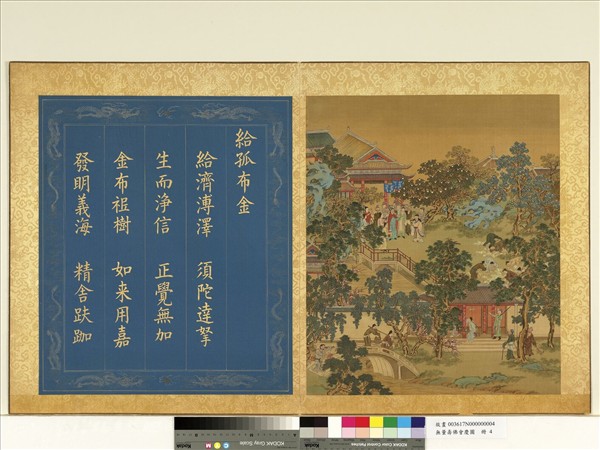 給孤布金
給濟溥澤 須陀達拏
生而淨信 正覺無加
金布祇樹 如来用嘉
發明義海 精舍趺跏
KODAK Gray Scale
KODAK Color Control Patches
故畫 003617N000000004
無量壽佛會慶圖 冊 4